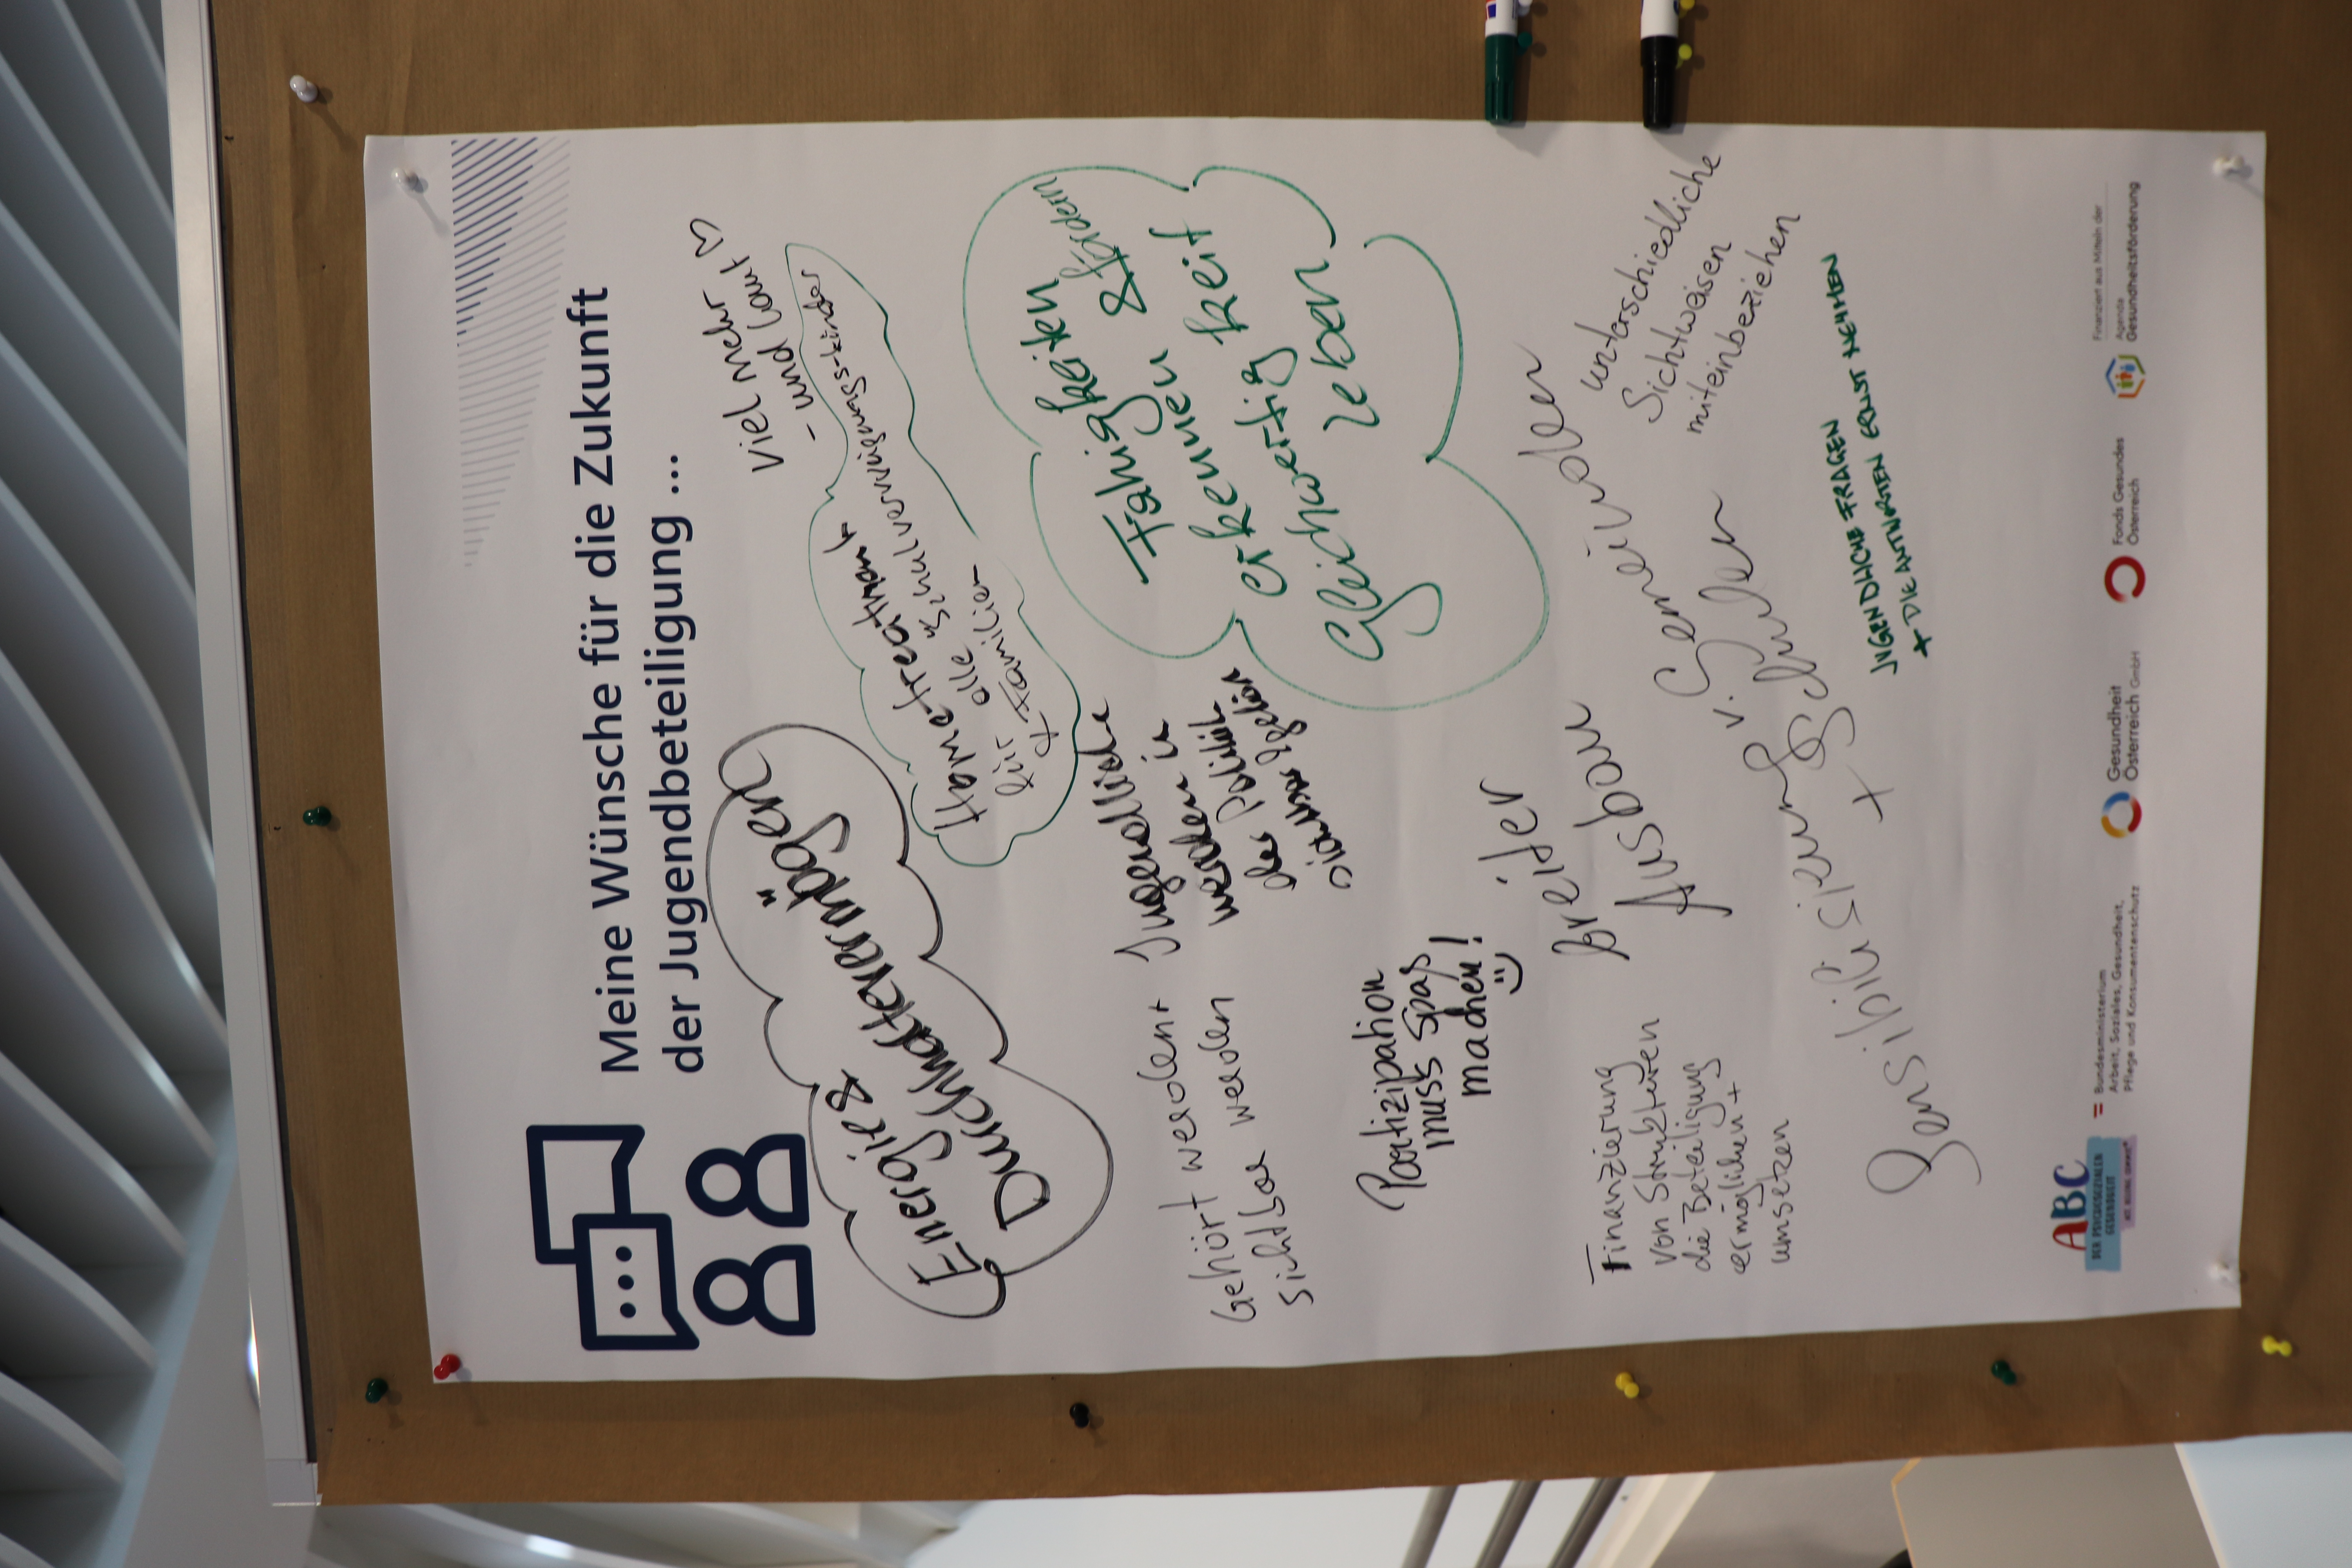 Meine Wünsche für die Zukunft
der Jugendbeteiligung ...
Viel mehr
- und laut ♡
Energie &
Durchhaltevermögen
Hometreatment
für alle
+ Familien
Fähigkeiten
erkennen & fördern
Gleichwertigkeit
leben
Jugendliche
werden in
der Politik
Gehört werden +
sichtbar werden
Partizipation
muss Spaß
machen!
Finanzierung
von Strukturen
die Beteiligung
ermöglichen +
umsetzen
breiter
Ausbau
Sensibilisierung v. Gemeinden
+ Schulen
unterschiedliche
Sichtweisen
miteinbeziehen
JUGENDLICHE FRAGEN
+ DIE ANTWORTEN ERNST NEHMEN
ABC
DER PSYCHOSOZIALEN
GESUNDHEIT
Bundesministerium
Arbeit, Soziales, Gesundheit,
Pflege und Konsumentenschutz
Gesundheit
Österreich GmbH
Fonds Gesundes
Österreich
Finanziert aus Mitteln der
Agenda
Gesundheitsförderung